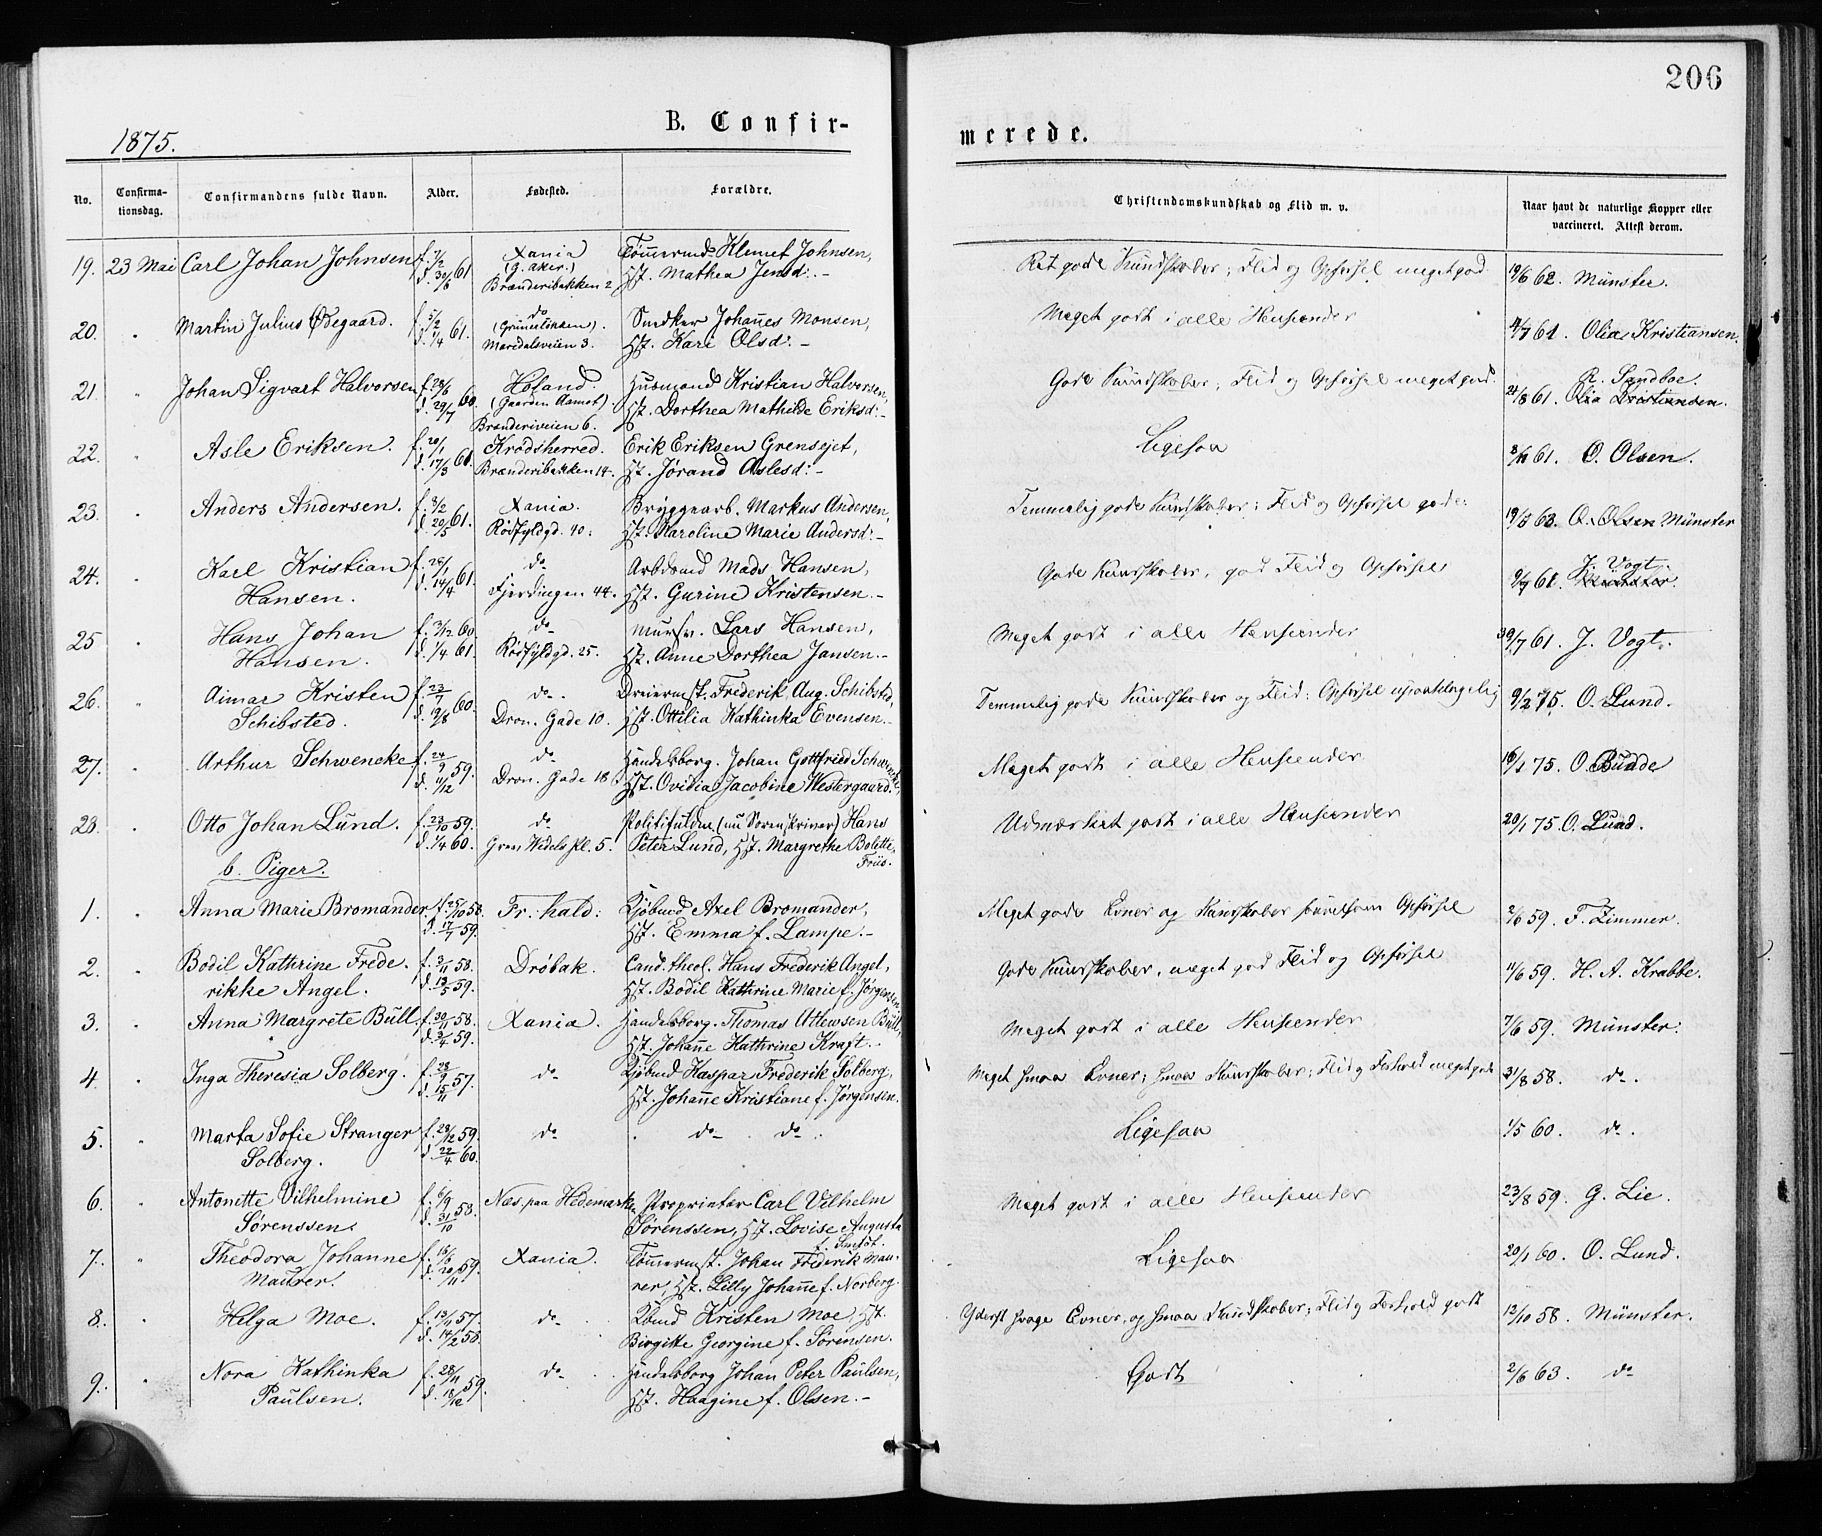 206
1875.
B. Confir-
merede.
No.
Confirma-
tionsdag.
Confirmandens fulde Navn.
Alder.
Fødested.
Forældre.
Christendomskundskab og Flid m. v.
Naar havt de naturlige Kopper eller
vaccineret. Attest derom.
19. 23 Mai Carl Johan Johnsen f. 7/2 61 d. 30/6 Xania (g. Aker.) Brænderibakken 2 Tömmermd Klemet Johnsen,
Hst. Mathea Jensd:-
Ret gode Kundskaber; Flid og Opførsel meget god 19/6 62. Münster.
20. " Martin Julius Ødegaard. f. 5/2 61. d. 1/4 do (Grünerløkken). Maridalsveien 3. Snedker Johañes Monsen,
Hst. Kari Olsd:-
Meget godt i alle Henseender 4/7 61. Olia Kristiansen.
21. " Johan Sigvart Halvorsen f. 28/6 60. d. 29/7 Höland. (Gaarden Aamot). Brænderiveien 6. Husmand Kristian Halvorsen,
Hst. Dorthea Mathilde Eriksd:-
Gode Kundskaber; Flid og Opførsel meget god. 24/8 61. R. Sandboe. Olia Kristiansen.
22. " Asle Eriksen. f. 20/1 60. d. 17/3 Krødsherred. Brænderibakken 14. Erik Eriksen Grensejet,
Hst. Jørand Aslesd:-
Ligesaa 61. O. Olsen.
23. " Anders Andersen. f. 3/2 61. d. 20/5 Xania. Rødfyldgd. 40. Bryggearb. Markus Andersen,
Hst. Karoline Marie Andersd:-
Temmelig gode Kundskaber; Flid og Opførsel gode. 63. O. Olsen Münster
24. " Karl Kristian
Hansen. f. 26/1 61. d. 14/4 do Fjerdingen 44. Arbdsmd Mads Hansen,
Hst. Gurine Kristensen.-
Gode Kundskaber, god Flid og Opførsel 61. J. Vogt. Münster.
25 " Hans Johan
Hansen. f. 3/12 60. d. 1/4 61. do Rødfyldgd. 25. Mursv. Lars Hansen,
Hst. Anne Dorthea Jansen.-
Meget godt i alle Henseender 30/7 61. J. Vogt.
26. " Aimar Kristen
Schibsted. f. 23/7 60. d. 19/8 do. Dron. Gade 10. Dreiermst. Frederik Aug. Schibsted,
Hst. Ottilia Kathinka Evensen.-
Temmelig gode Kundskaber og Flid; Opførsel upaaklagelig 9/2 75. O. Lund.
27. " Arthur Schwencke f. 24/9 59. d. 11/12 do Dron. Gade 18 Handelsborg. Johan Gottfried Schwencke,
Hst. Ovidia Jacobine Westergaard.
Meget godt i alle Henseender 16/1 75. O. Bunde
28. " Otto Johan Lund. f. 23/10 59. d. 1/4 60. do Grev Wedels Pl. 5. Politifuldm. (nu Sorenskriver) Hans
Peter Lund, Hst. Margrethe Bolette
Friis.
Udmærket godt i alle Henseender 20/1 75. O. Lund.
b. Piger.
1. " Anna Marie Bromander f. 25/10 58. d. 17/7 59. Fr: hald: Kjøbmd Axel Bromander,
Hst. Emma f. Lampe.-
Meget gode Evner og Kundskaber sømelsom Opførsel 2/6 59. F. Zimmer.
2. " Bodil Kathrine Frede.
rikke Angel. f. 3/11 58. d. 13/5 59. Drøbak. Cand. theol. Hans Frederik Angel,
Hst. Bodil Kathrine Marie f. Jørgensen
Gode Kundskaber, meget god Flid og Opførsel 11/6 59. H. A. Krabbe.
3. " Anna Margrete Büll. f. 30/11 58. d. 3/4 59. Xania. Handelsborg. Thomas Atlewsen Büll,
Hst. Johañe Kathrine Kraft.-
Meget godt i alle Henseender 7/6 59. Münster.
4. " Inga Theresia Solberg. f. 23/7 57. d. 15/11 do Kjøbmd Kaspar Frederik Solberg,
Hst. Johañe Kristiane f. Jørgensen.
Meget smaa Evner; smaa Kundskaber; Flid og Forhold meget gode 31/8 58. do.
5. " Marta Sofie Stranger
Solberg. f. 28/12 59. d. 22/4 60. do do do
Ligesaa 1/5 60. do.
6. " Antonette Vilhelmine
Sørenssen. f. 6/9 58. d. 31/10 Næs, paa Hedemarken Proprietær Carl Vilhelm
Sörenssen, Hst. Lovise Augusta
Meget godt i alle Henseender 23/8 59. G. Lie.
7. " Theodora Johanne
Maurer. f. 16/6 59. d. 20/11 Xania. Tömmermst. Johan Frederik Mau-
rer, Hst. Lilly Johañe f. Norberg.
Ligesaa 20/1 60. O. Lund.
8. " Helga Moe. f. 13/11 57. d. 14/2 58. do Kbmd Kristen Moe, Hst.
Birgitte Georgine f. Sørensen.
Yderst svage Evner, og smaa Kundskaber; Flid og Forhold godt 12/10 58. Münster.
9. " Nora Kathinka
Paulsen. f. 28/11 59. d. 18/12 do Handelsborg Johan Peter Paulsen,
Hst. Haagine f. Olsen.-
Godt 2/6 63. do